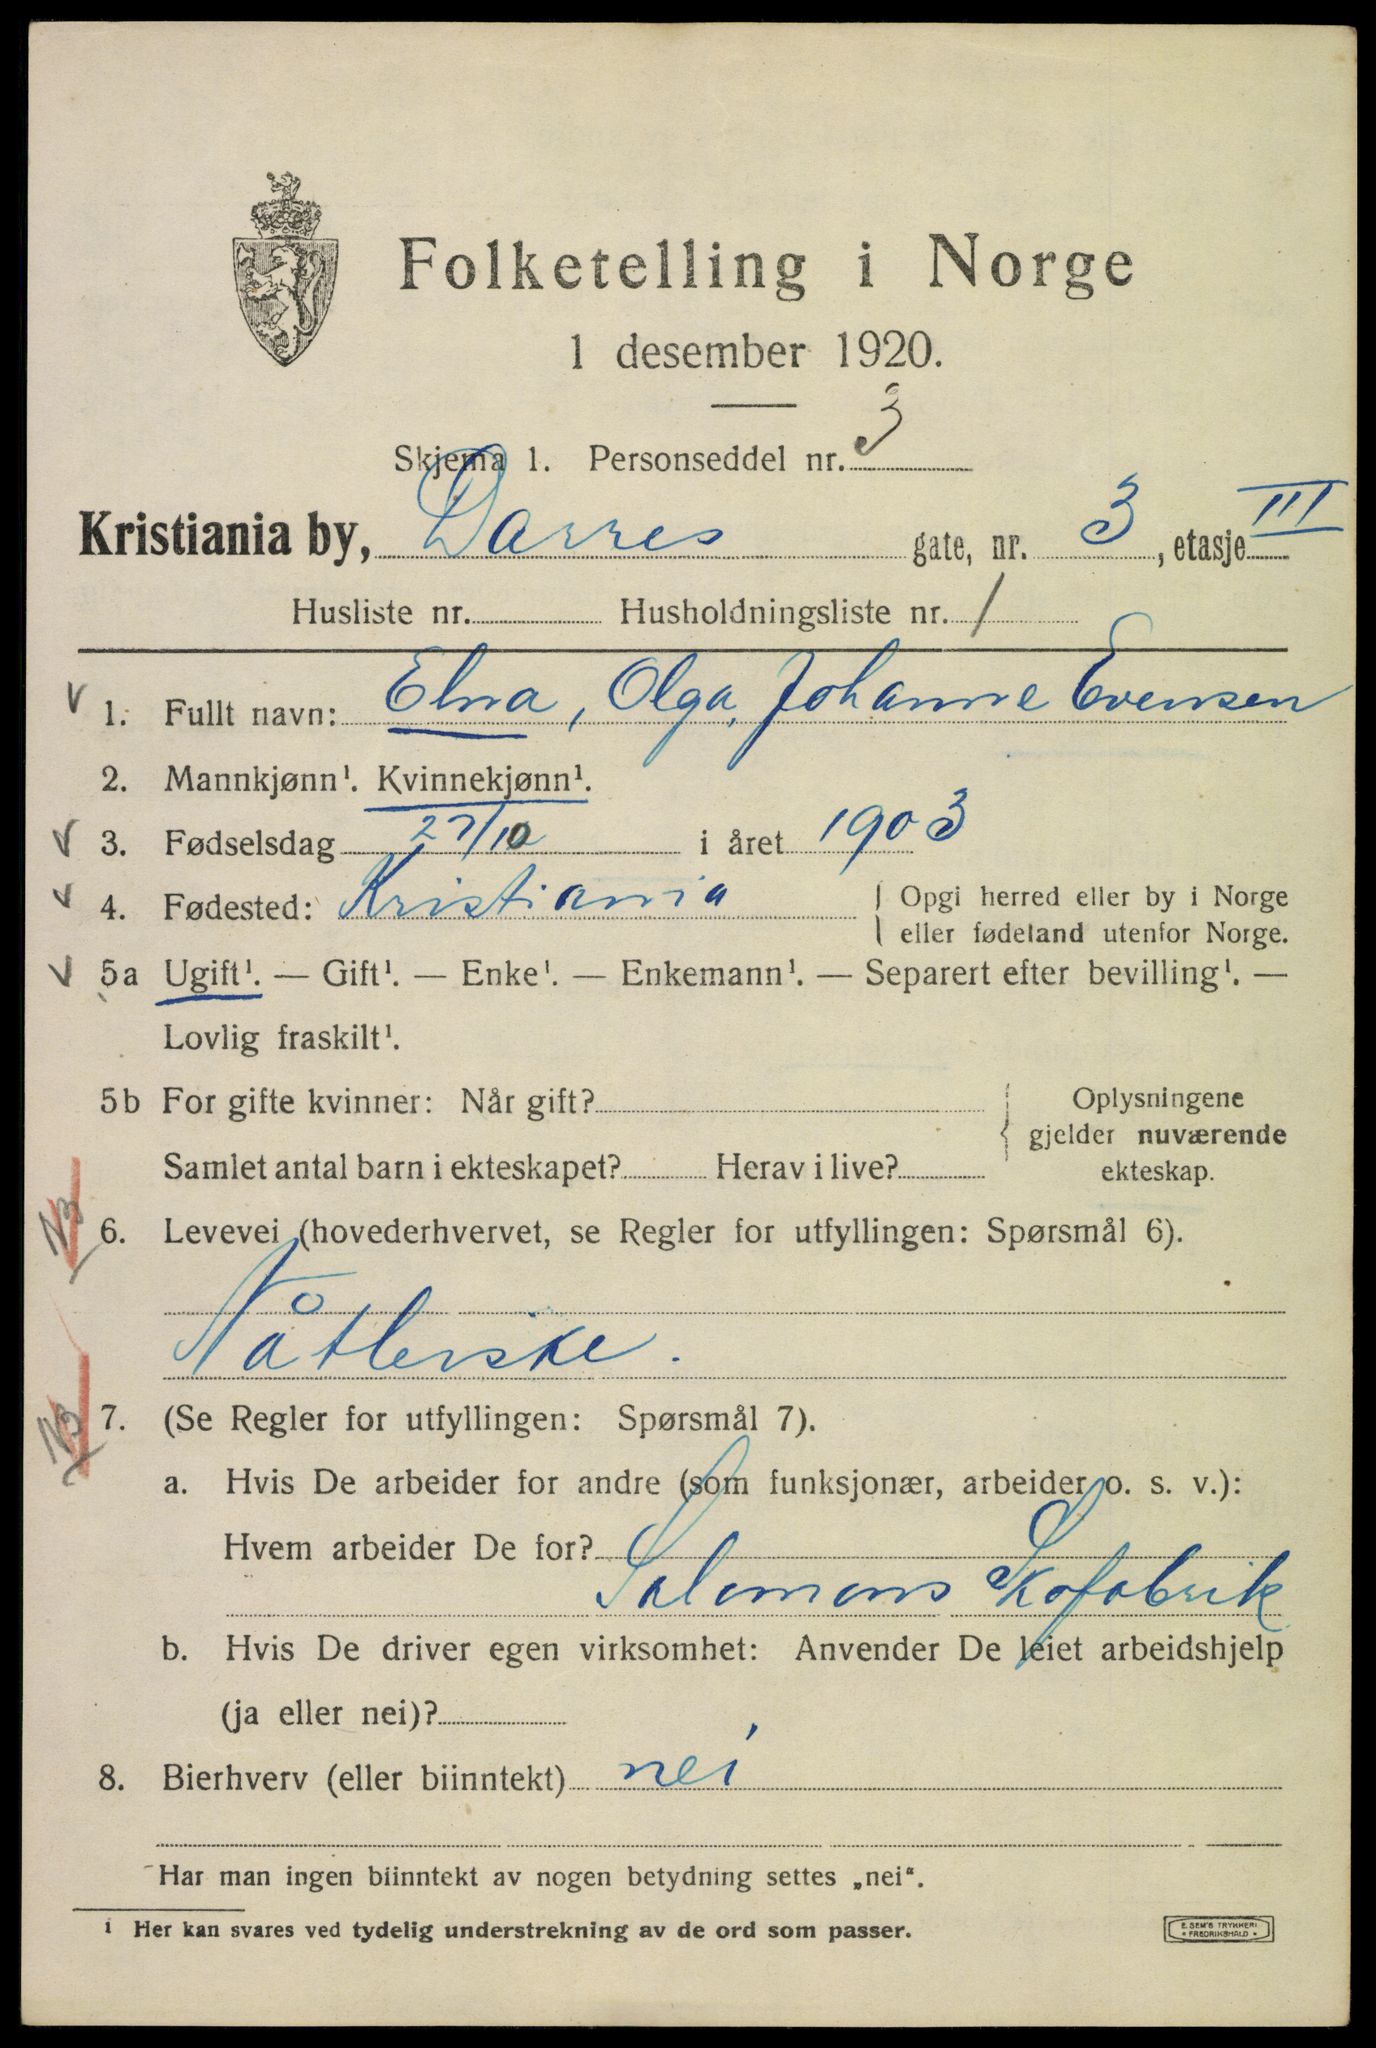 Folketelling i Norge
1 desember 1920.
Skjema 1. Personseddel nr. 3
Kristiania by, Darres gate, nr. 3, etasje III
Husliste nr. Husholdningsliste nr. 1
1. Fullt navn: Elna, Olga, Johanne Evensen
2. Mannkjønn¹. Kvinnekjønn¹.
3. Fødselsdag 27/10 i året 1903
4. Fødested: Kristiania { Opgi herred eller by i Norge
eller fødeland utenfor Norge.
5a Ugift¹. — Gift¹. — Enke¹. — Enkemann¹. — Separert efter bevilling¹. —
Lovlig fraskilt¹.
5b For gifte kvinner: Når gift? { Oplysningene
gjelder nuværende
Samlet antal barn i ekteskapet? Herav i live? ekteskap.
N3 6. Levevei (hovederhvervet, se Regler for utfyllingen: Spørsmål 6).
Nåtlerske.
N3 7. (Se Regler for utfyllingen: Spørsmål 7).
a. Hvis De arbeider for andre (som funksjonær, arbeider o. s. v.):
Hvem arbeider De for?
Salomons Skofabrik
b. Hvis De driver egen virksomhet: Anvender De leiet arbeidshjelp
(ja eller nei)?
8. Bierhverv (eller biinntekt) nei
Har man ingen biinntekt av nogen betydning settes „nei“.
1 Her kan svares ved tydelig understrekning av de ord som passer.
E. SEM'S TRYKKERI
• FREDRIKSHALD •